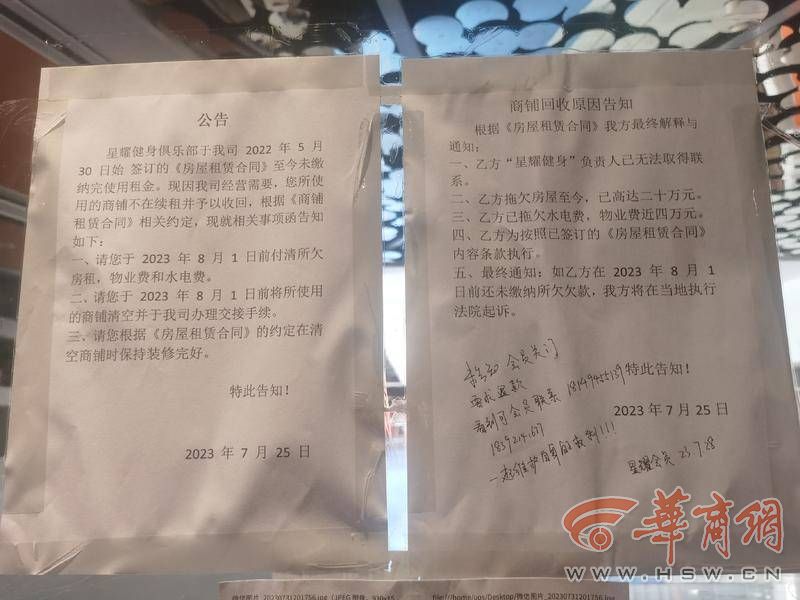 公告
星耀健身俱乐部于我司 2022 年 5 月
30 日始 签订的《房屋租赁合同》至今未缴
纳完使用租金。现因我司经营需要，您所使
用的商铺不在续租并予以收回，根据《商铺
租赁合同》相关约定，现就相关事项函告知
如下：
一、请您于 2023 年 8 月 1 日前付清所欠
房租，物业费和水电费。
二、请您于 2023 年 8 月 1 日前将所使用
的商铺清空并于我司办理交接手续。
三、请您根据《房屋租赁合同》的约定在清
空商铺时保持装修完好。
特此告知！
2023 年 7 月 25 日
商铺回收原因告知
根据《房屋租赁合同》我方最终解释与
通知：
一、乙方“星耀健身”负责人已无法取得联
系。
二、乙方拖欠房屋至今，已高达二十万元。
三、乙方已拖欠水电费，物业费近四万元。
四、乙方为按照已签订的《房屋租赁合同》
内容条款执行。
五、最终通知：如乙方在 2023 年 8 月 1
日前还未缴纳所欠欠款，我方将在当地执行
法院起诉。
特此告知！
2023 年 7 月 25 日
会员关门
要求退款
看到可会员联系
一起维护自身的权利!!!
星耀会员 23.7.28
華商網
WWW.HSW.CN
微信图片_20230731201756.jpg (JPEG 图像，
file:///home/ops/Desktop/微信图片_20230731201756.jpg